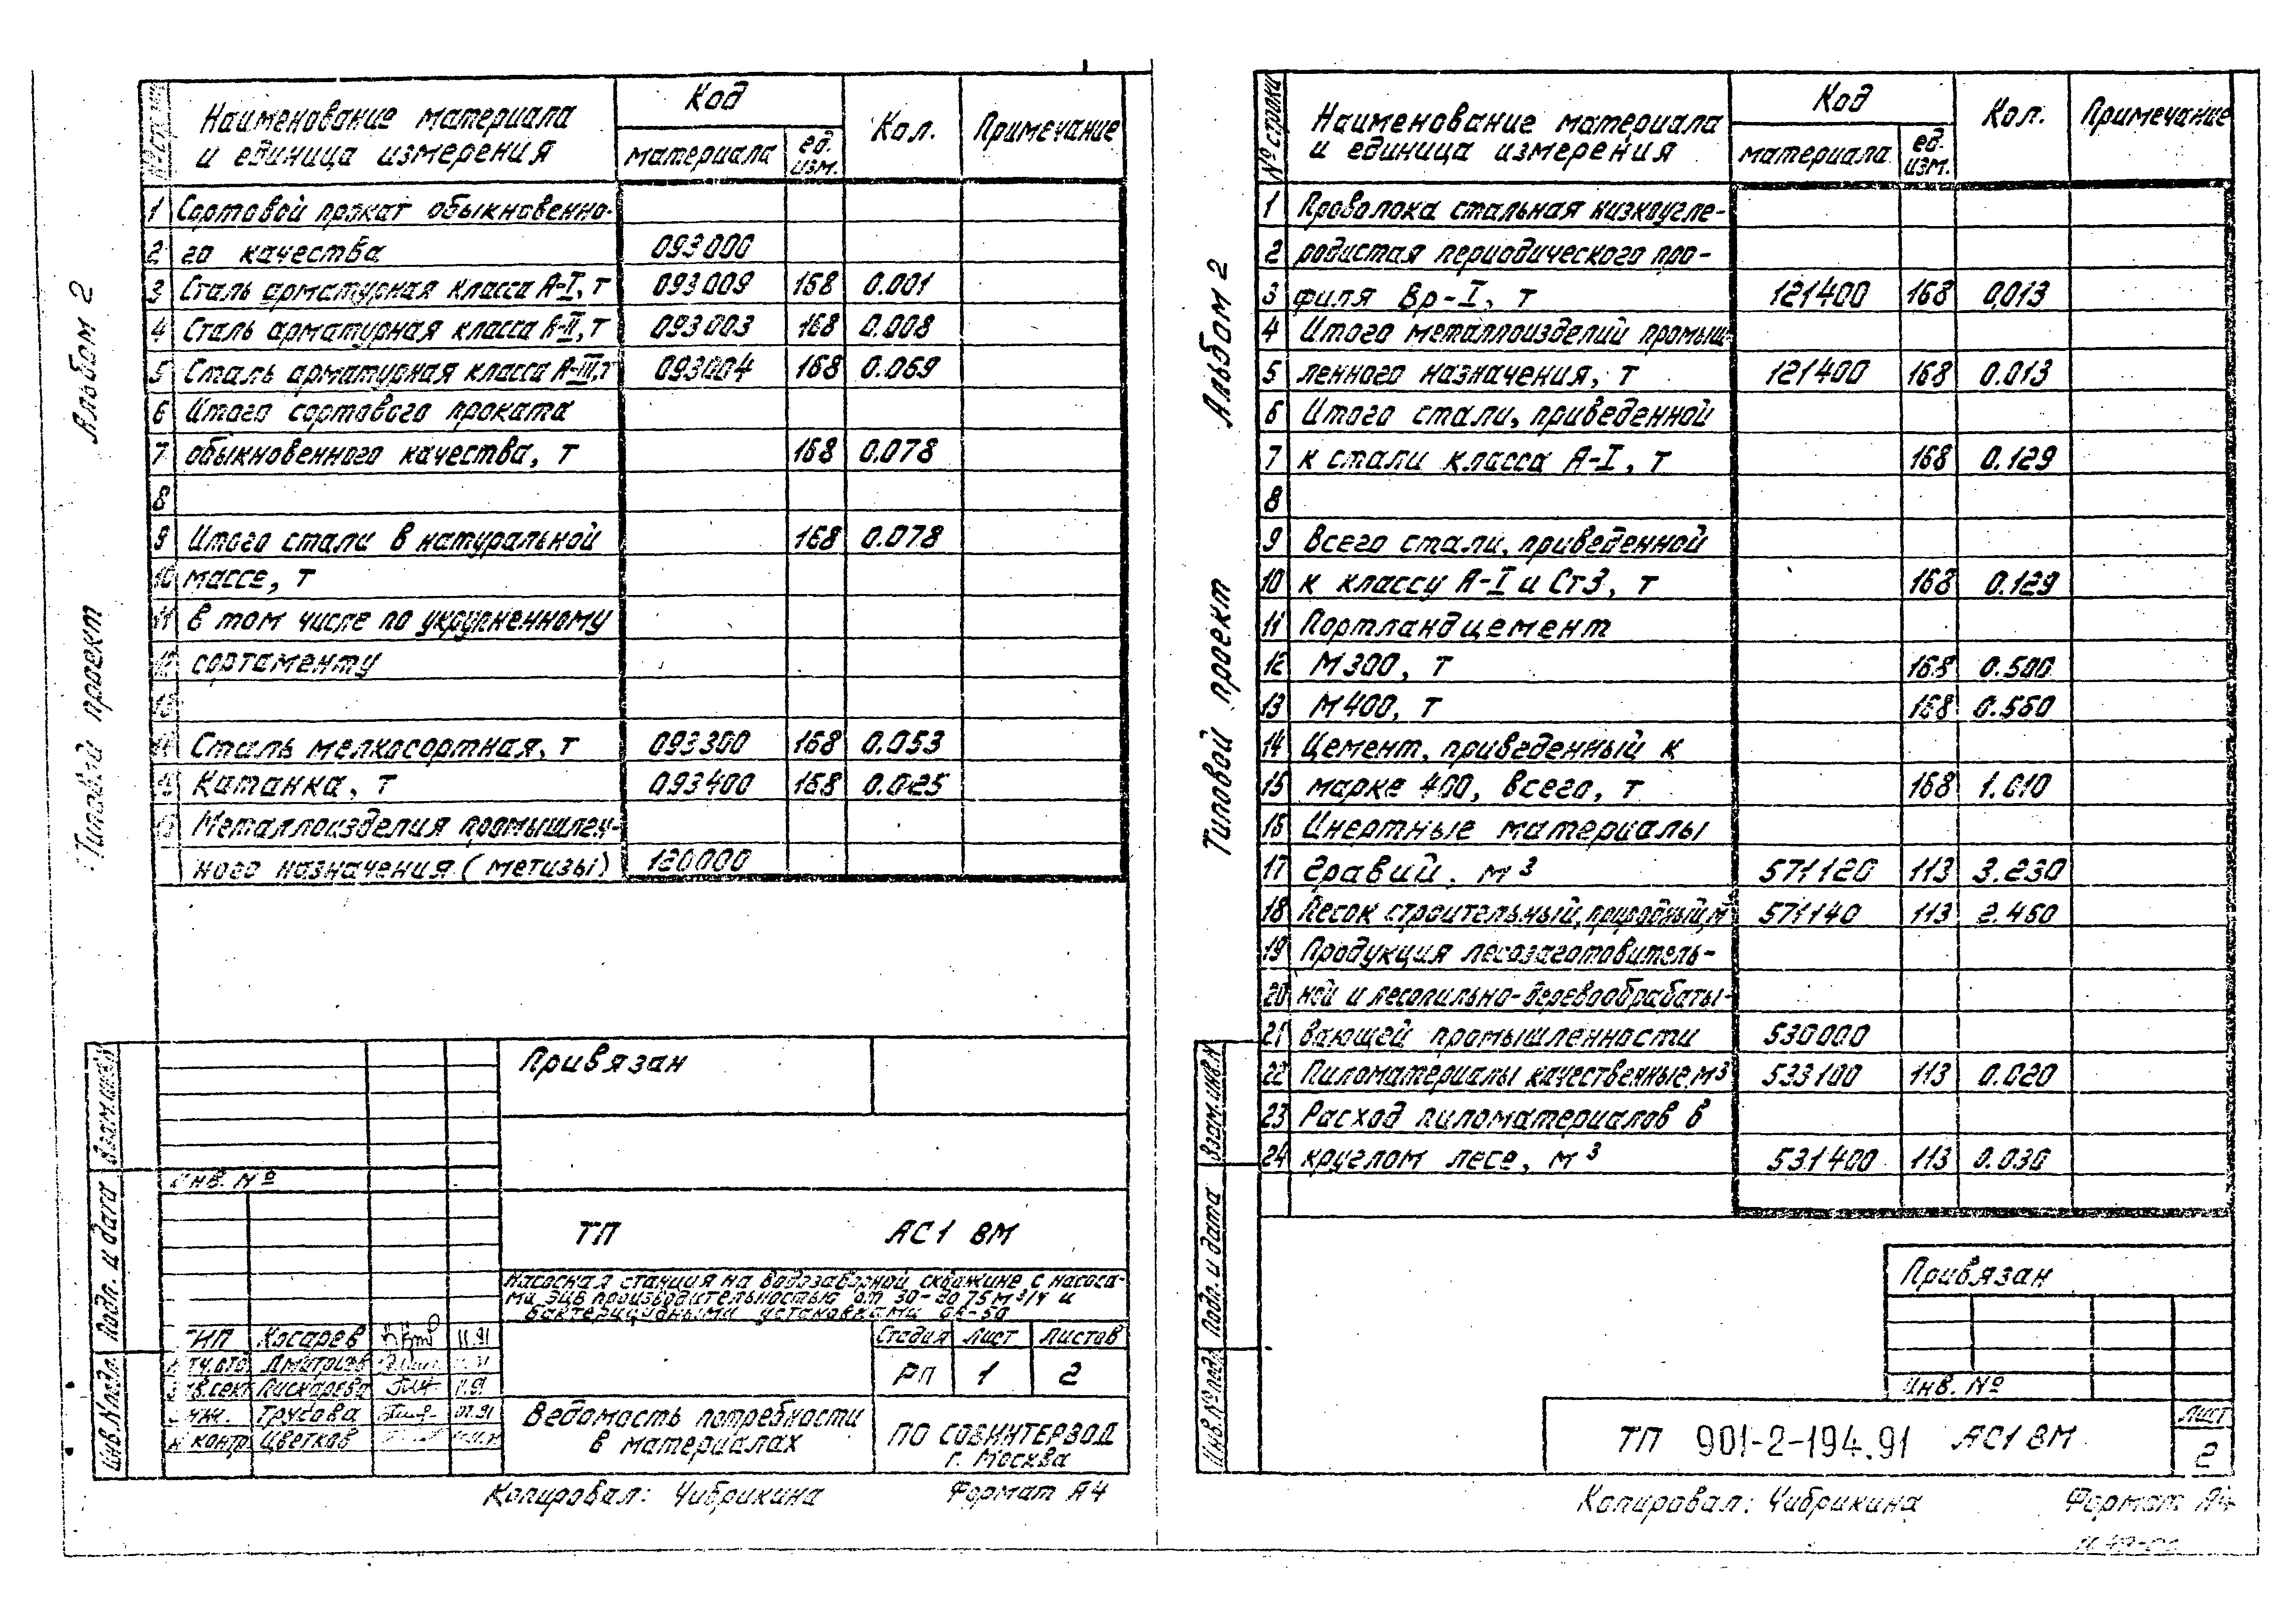 Альбом 2
Типовой проект
Наименование материала и единица измерения
Код
материала
ед. изм.
Кол.
Примечание
1 Сортовой прокат обыкновенно-
2 го качества 093000
3 Сталь арматурная класса А-I, т 093009 168 0.001
4 Сталь арматурная класса А-II, т 093003 168 0.008
5 Сталь арматурная класса А-III, т 093004 168 0.069
6 Итого сортового проката
7 обыкновенного качества, т 168 0.078
8
9 Итого стали в натуральной 168 0.078
10 массе, т
11 в том числе по укрупненному
12 сортаменту
13
14 Сталь мелкосортная, т 093300 168 0.053
15 Катанка, т 093400 168 0.025
16 Металлоизделия промышлен-
ного назначения (метизы) 120000
Взам.инв.№
Подп. и дата
Инв.№подл.
Привязан
Инв. №
ТП АС1 ВМ
Насосная станция на водозаборной скважине с насоса-
ми ЭЦВ производительностью от 30-до 75 м³/ч и
бактерицидными установками
ГИП Косарев 11.91
Дмитриев
Пискарева 11.91
Трусова 07.91
Н контр Цветков
Стадия Лист Листов
РП 1 2
Ведомость потребности
в материалах
ПО СОВИНТЕРВОД
г. Москва
Копировал: Чибрикина Формат А4
Альбом 2
Типовой проект
№ строки
Наименование материала и единица измерения
Код
материала
ед. изм.
Кол.
Примечание
1 Проволока стальная низкоугле-
2 родистая периодического про-
3 филя Вр-I, т 121400 168 0,013
4 Итого металлоизделий промыш-
5 ленного назначения, т 121400 168 0.013
6 Итого стали, приведенной
7 к стали класса А-I, т 168 0.129
8
9 Всего стали, приведенной
10 к классу А-I и Ст3, т 168 0.129
11 Портландцемент
12 М300, т 168 0.500
13 М400, т 168 0.560
14 Цемент, приведенный к
15 марке 400, всего, т 168 1.010
16 Инертные материалы
17 Гравий, м³ 571120 113 3.230
18 Песок строительный, природный, м³ 571140 113 2.460
19 Продукция лесозаготовитель-
20 ной и лесопильно-деревообрабаты-
21 вающей промышленности 530000
22 Пиломатериалы качественные, м³ 533100 113 0.020
23 Расход пиломатериалов в
24 круглом лесе, м³ 531400 113 0.030
Взам.инв.№
Подп. и дата
Инв.№подл.
Привязан
Инв. №
ТП 901-2-194.91 АС1 ВМ
Лист
2
Копировал: Чибрикина Формат А4